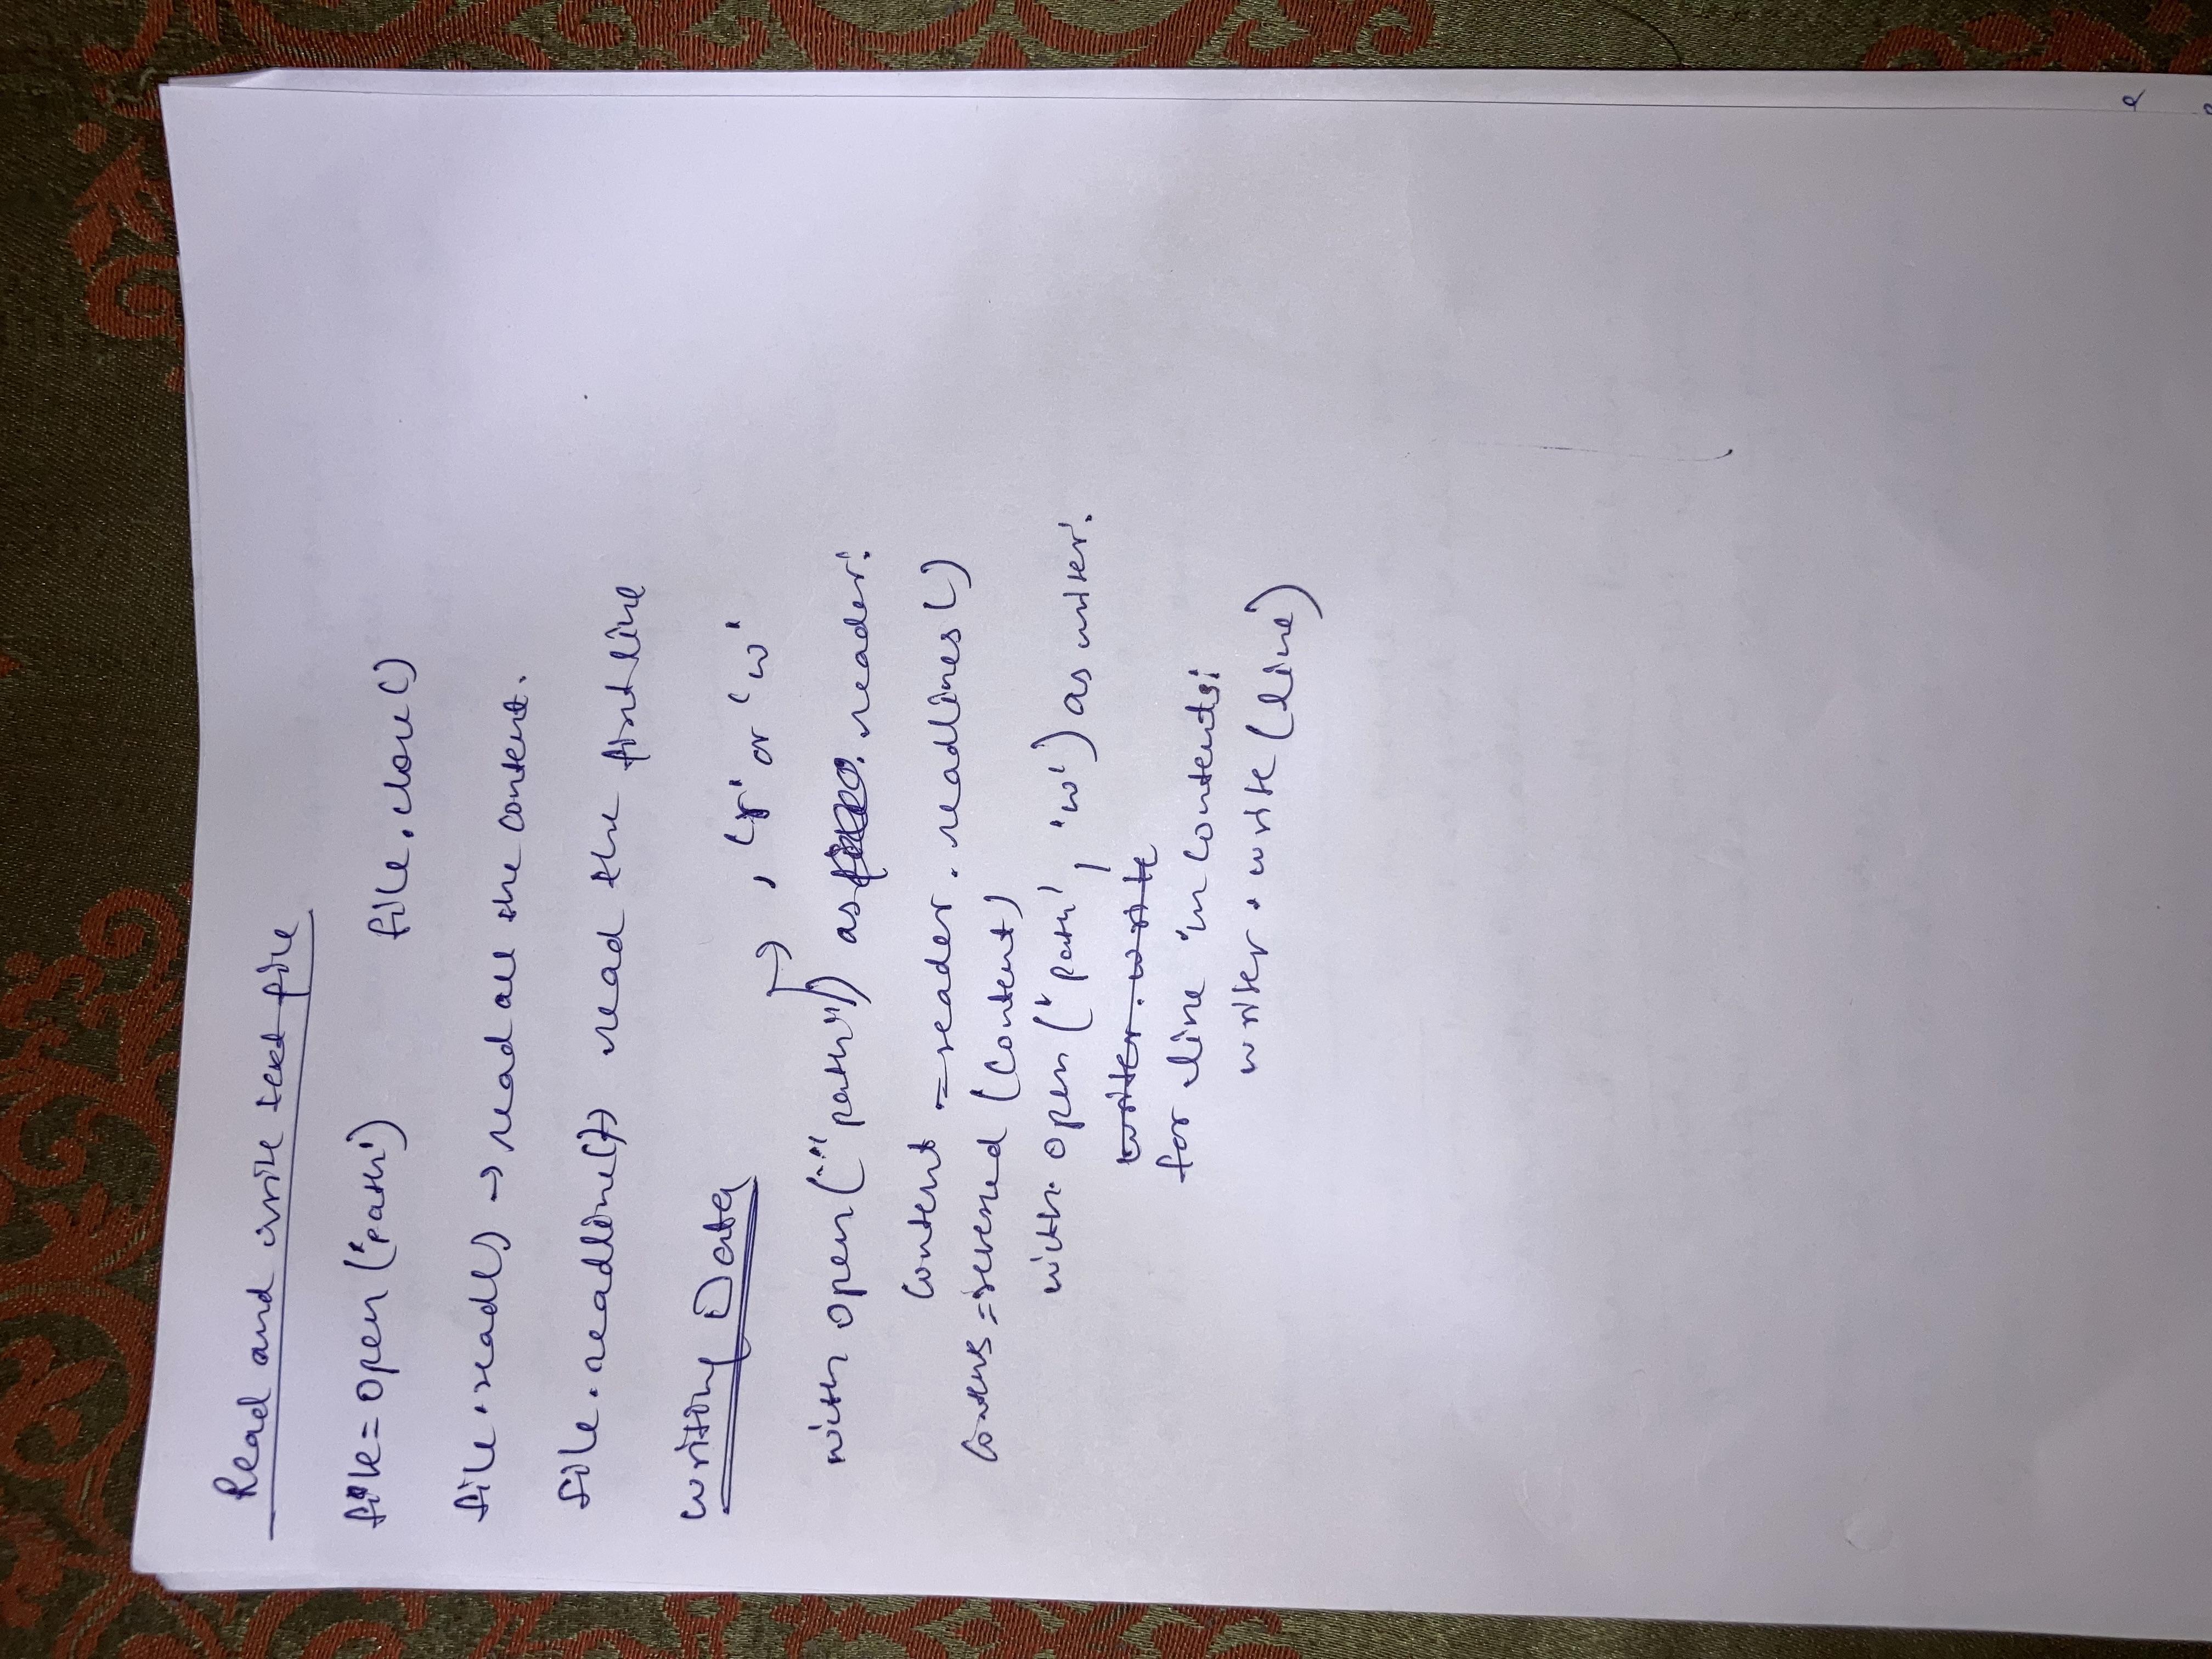 Read and write text file
file = open ('path') file.close()
file.read() → read all the content.
file.readline() → read the first line
Writing Data
→ , 'r' or 'w'
with open (""path") as reader:
Content = reader.readlines()
Contents = reversed (Content)
with open ('path', 'w') as writer:
writer.write
for line in contents:
writer.write (line)
e